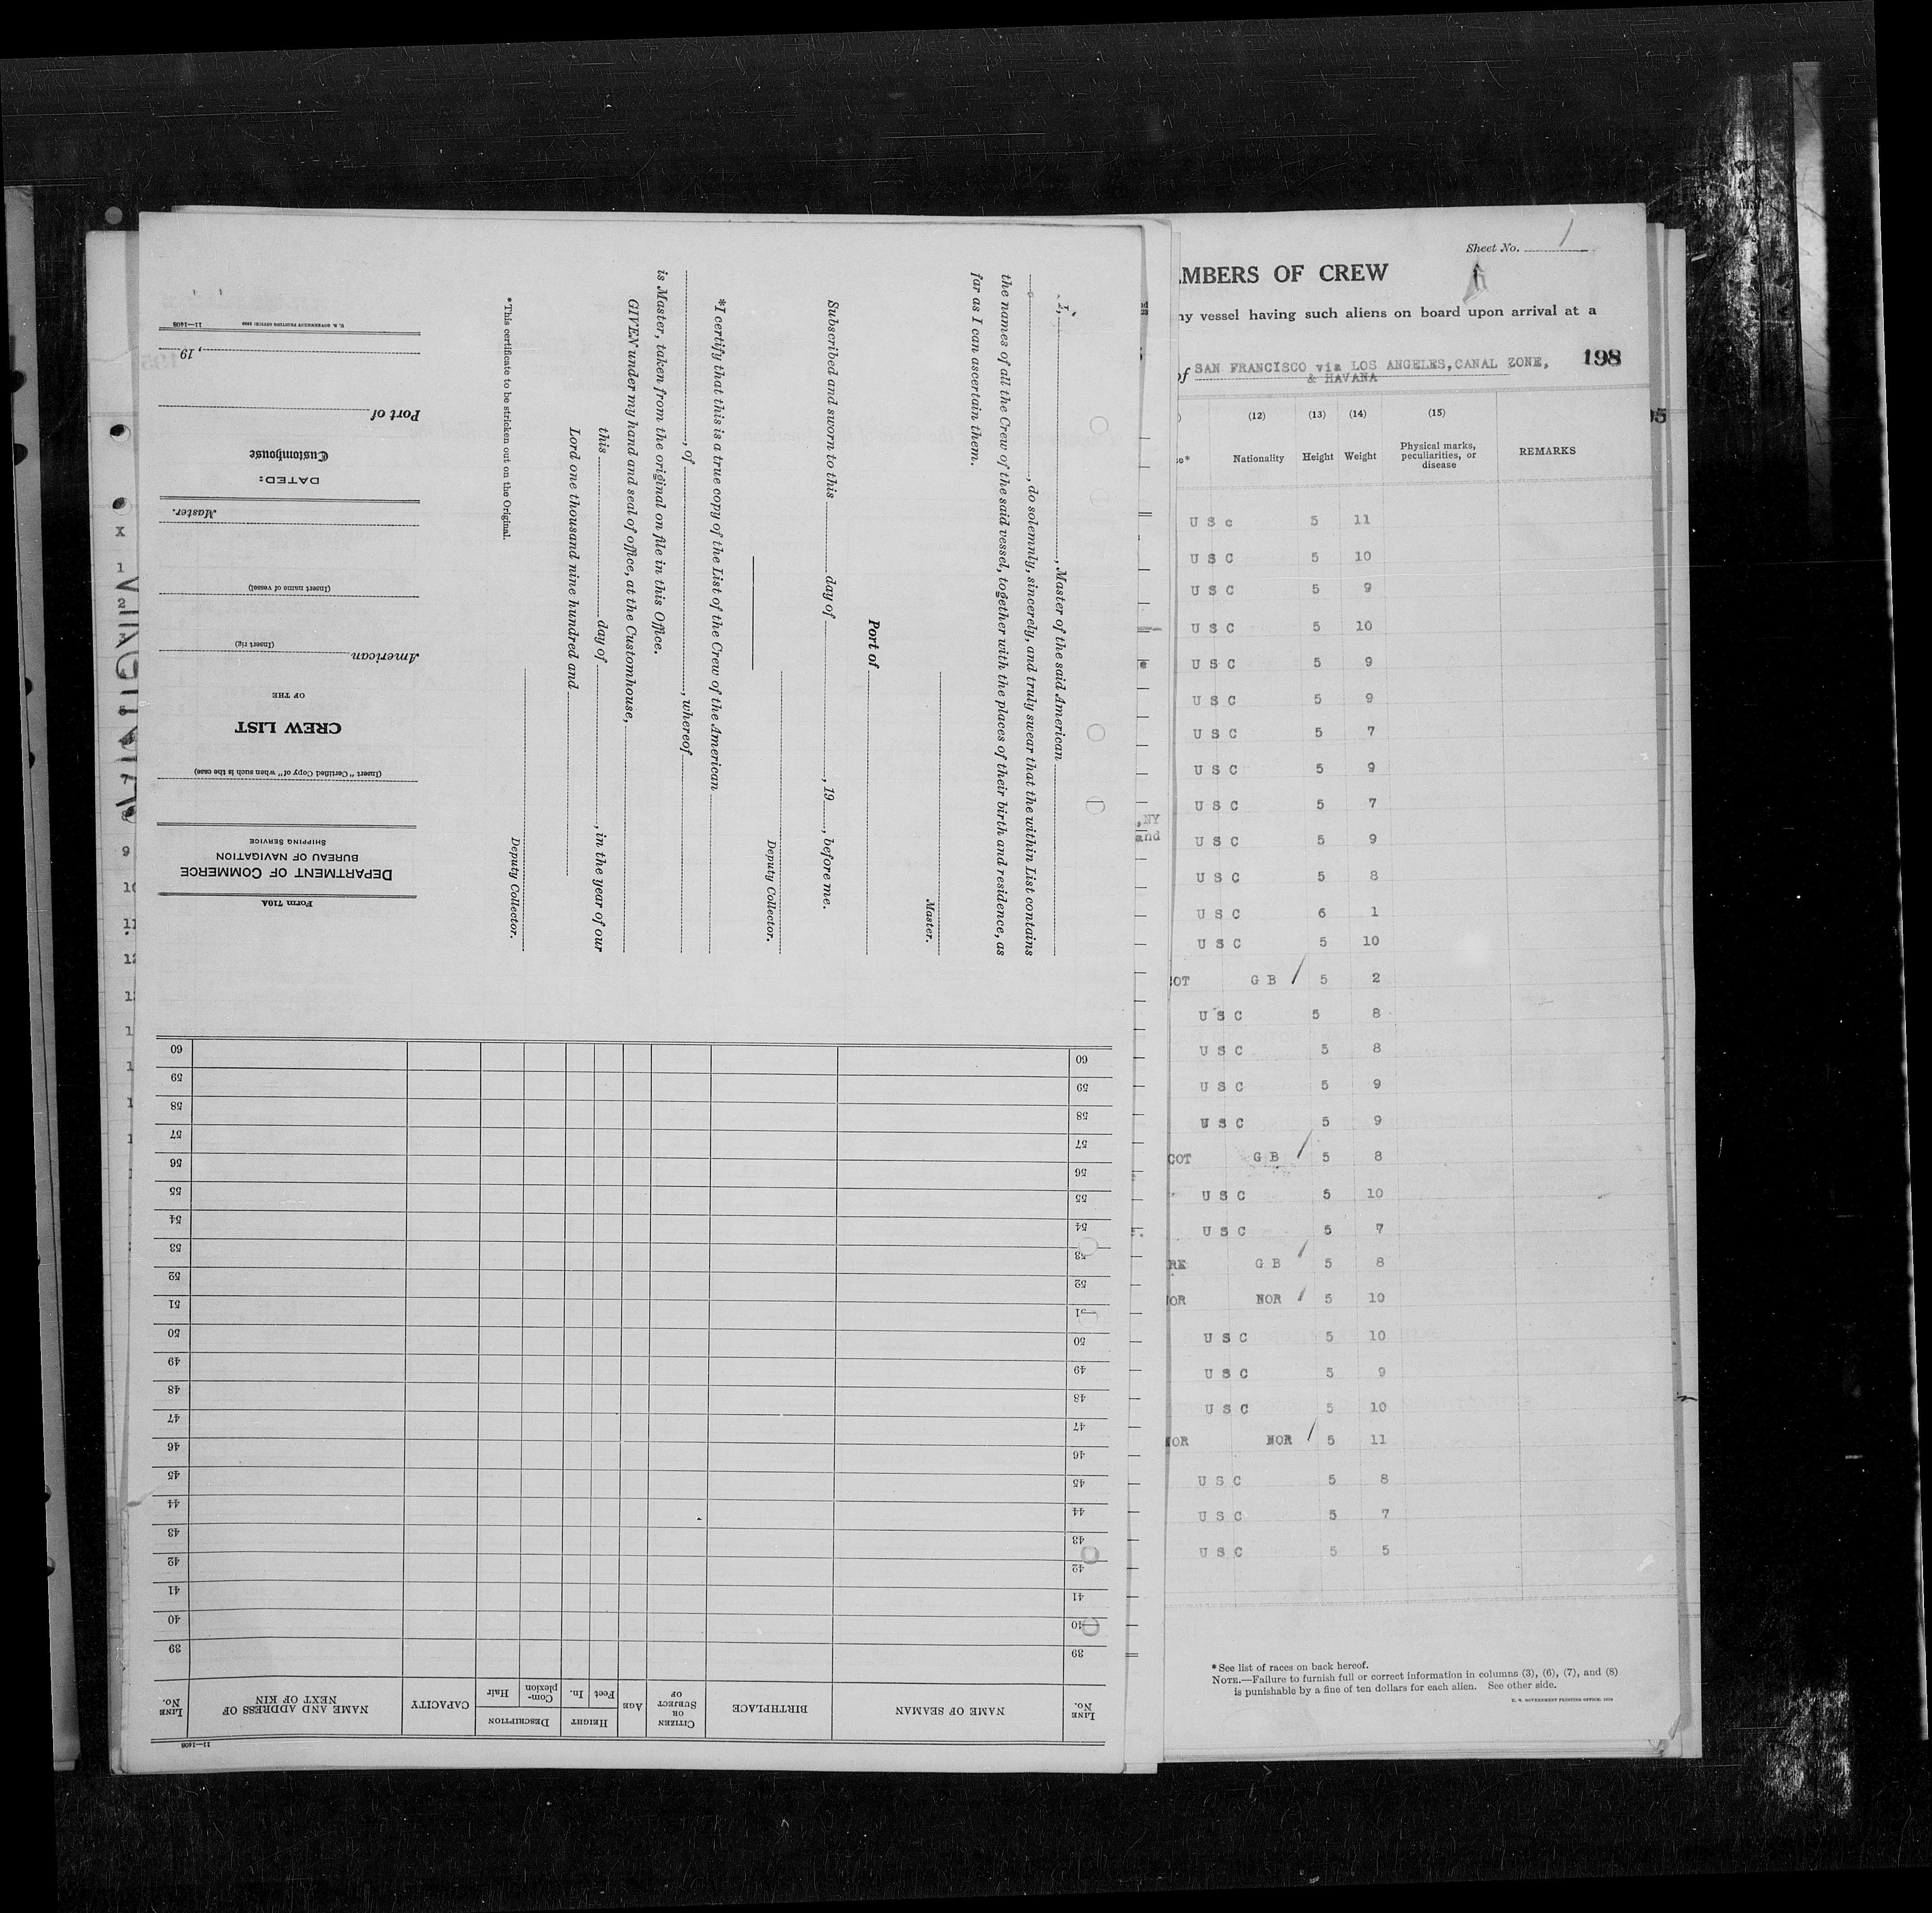 Sheet No. 1
MBERS OF CREW
ny vessel having such aliens on board upon arrival at a
of SAN FRANCISCO via LOS ANGELES, CANAL ZONE, 198
& HAVANA
(12) (13) (14) (15)
Nationality Height Weight Physical marks, peculiarities, or disease REMARKS
U S c 5 11
U S C 5 10
U S C 5 9
U S C 5 10
U S C 5 9
U S C 5 9
U S C 5 7
U S C 5 9
U S C 5 7
U S C 5 9
U S C 5 8
U S C 6 1
U S C 5 10
COT G B / 5 2
U S C 5 8
U S C 5 8
U S C 5 9
U S C 5 9
COT G B / 5 8
U S C 5 10
U S C 5 7
RE G B / 5 8
OR NOR / 5 10
U S C 5 10
U S C 5 9
U S C 5 10
OR NOR / 5 11
U S C 5 8
U S C 5 7
U S C 5 5
* See list of races on back hereof.
NOTE.—Failure to furnish full or correct information in columns (3), (6), (7), and (8)
is punishable by a fine of ten dollars for each alien. See other side.
U. S. GOVERNMENT PRINTING OFFICE
,NY
and
I, , Master of the said American
, do solemnly, sincerely, and truly swear that the within List contains
the names of all the Crew of the said vessel, together with the places of their birth and residence, as
far as I can ascertain them.
Master.
Port of
Subscribed and sworn to this day of , 19 , before me.
Deputy Collector.
*I certify that this is a true copy of the List of the Crew of the American
, of , whereof
is Master, taken from the original on file in this Office.
GIVEN under my hand and seal of office, at the Customhouse,
this day of , in the year of our
Lord one thousand nine hundred and
Deputy Collector.
*This certificate to be stricken out on the Original.
Form 710A
DEPARTMENT OF COMMERCE
BUREAU OF NAVIGATION
SHIPPING SERVICE
(Insert "Certified Copy of" when such is the case)
CREW LIST
OF THE
American
(Insert rig)
(Insert name of vessel)
Master.
DATED:
Customhouse
Port of
, 19
U. S. GOVERNMENT PRINTING OFFICE 11—1408
11—1408
LINE No. NAME OF SEAMAN BIRTHPLACE CITIZEN OR SUBJECT OF AGE HEIGHT Feet In. DESCRIPTION Complexion Hair CAPACITY NAME AND ADDRESS OF NEXT OF KIN LINE No.
39 39
40 40
41 41
42 42
43 43
44 44
45 45
46 46
47 47
48 48
49 49
50 50
51 51
52 52
53 53
54 54
55 55
56 56
57 57
58 58
59 59
60 60